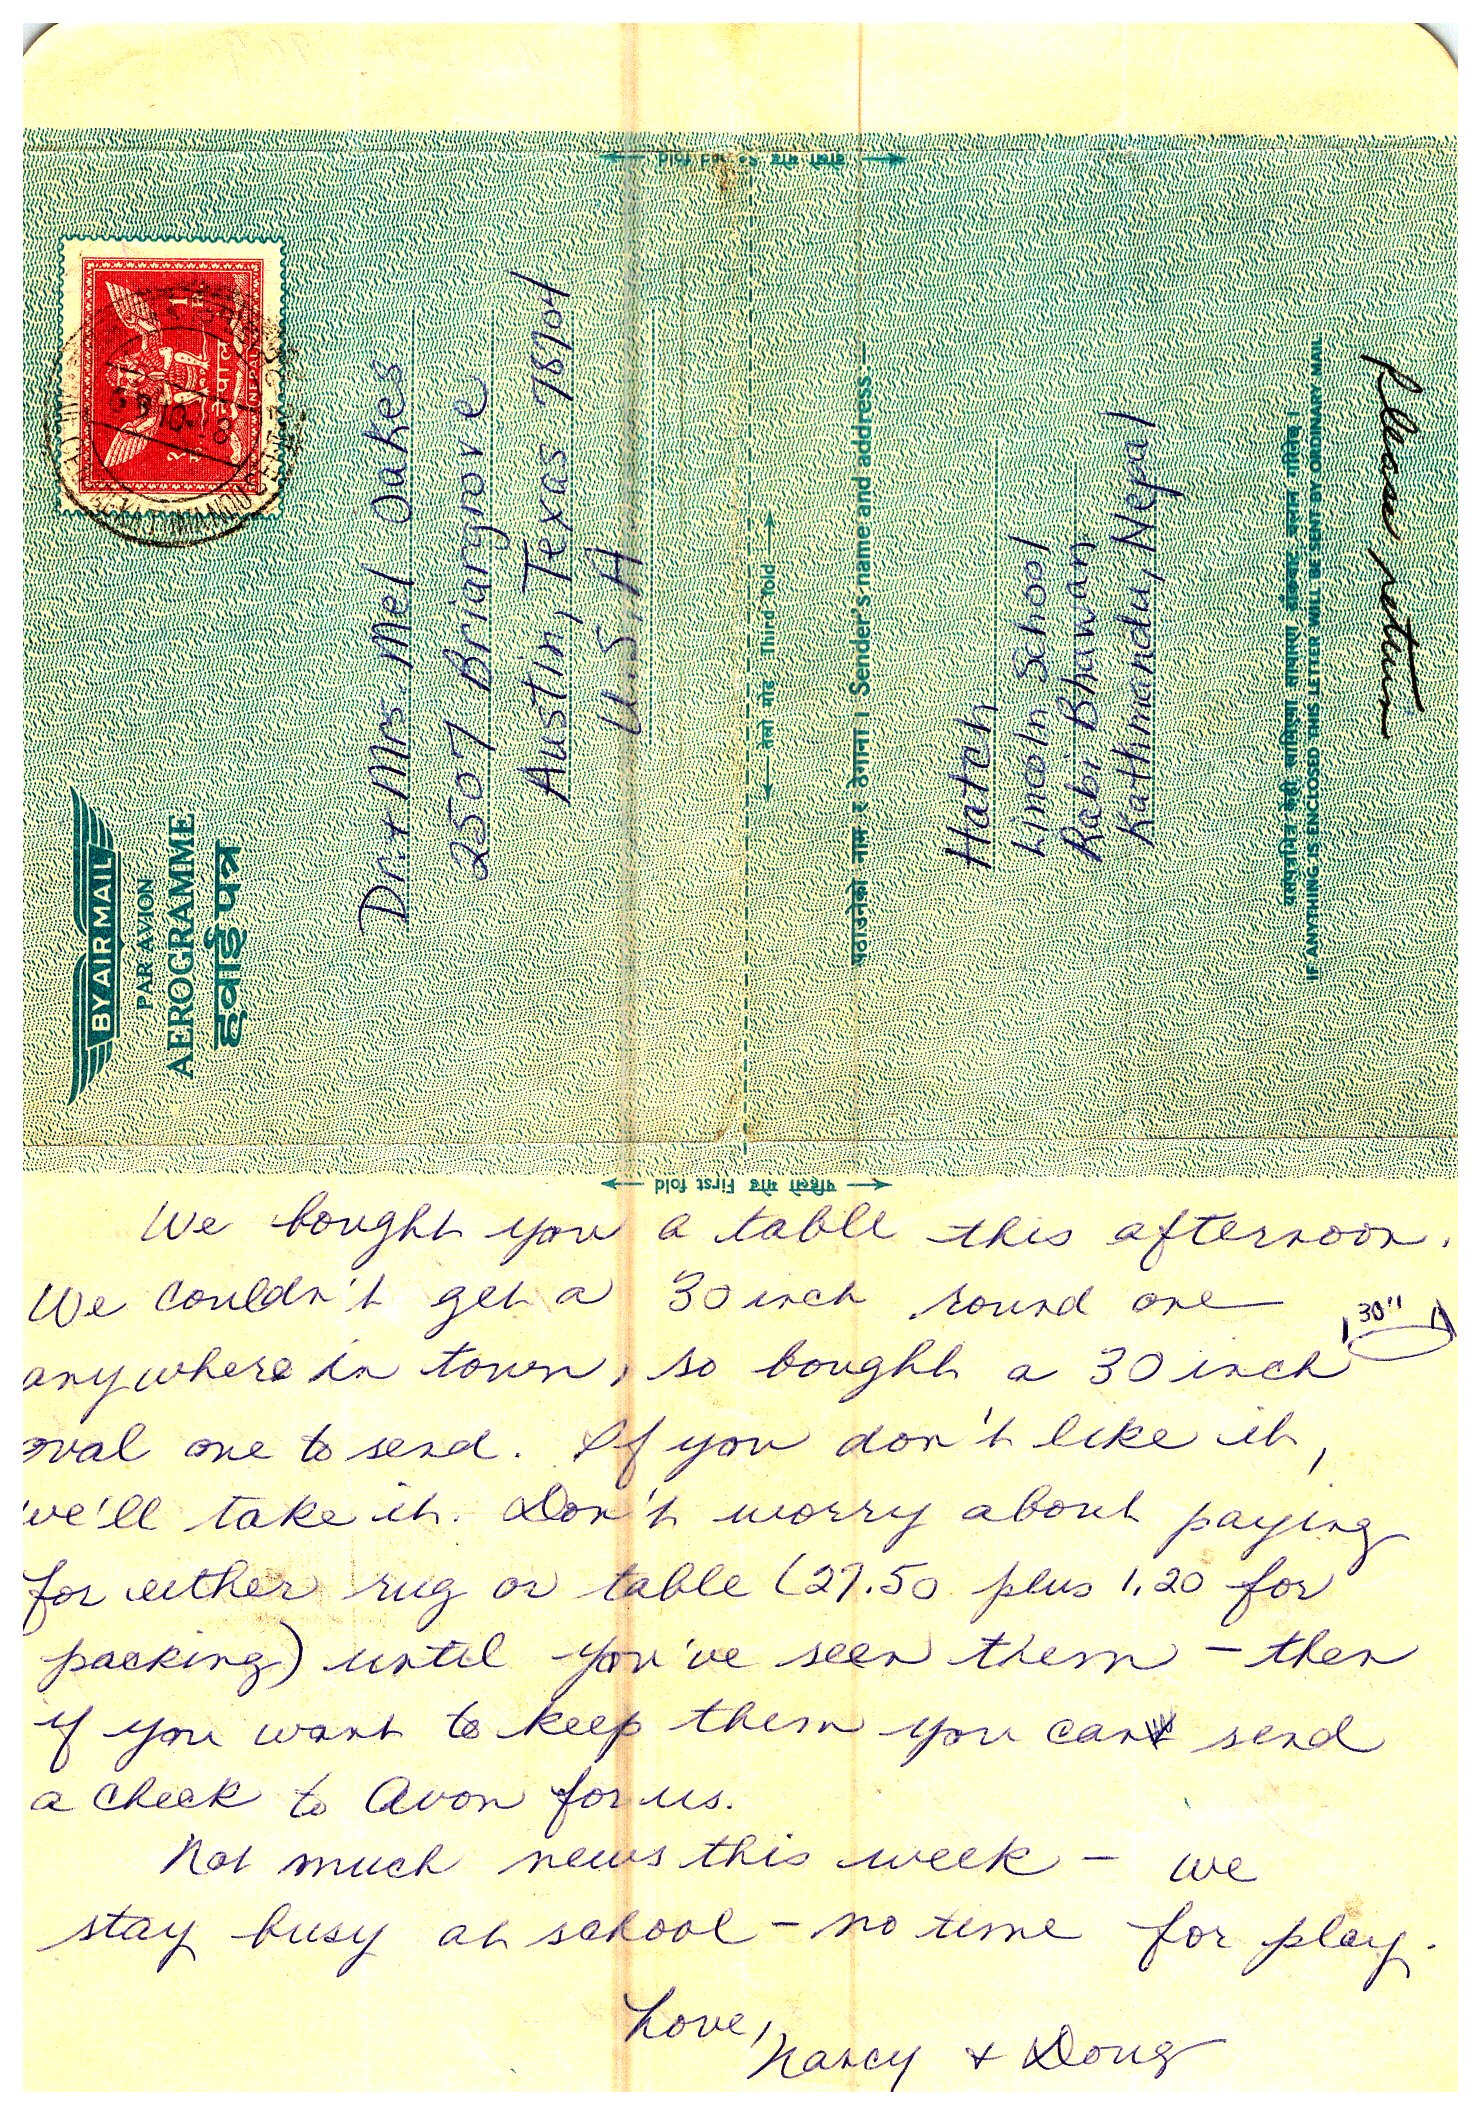 BY AIR MAIL
PAR AVION
AEROGRAMME
हवाई पत्र
नेपाल
NEPAL
Dr. + Mrs. Mel Oakes
2507 Briargrove
Austin, Texas 78704
U.S.A
तेस्रो मोड Third fold
पठाउनेको नाम र ठेगाना । Sender's name and address
Hatch
Lincoln School
Rabi Bhawan
Kathmandu, Nepal
IF ANYTHING IS ENCLOSED THIS LETTER WILL BE SENT BY ORDINARY MAIL
please return
दोस्रो मोड fold
पहिलो मोड First fold
We bought you a table this afternoon.
We couldn't get a 30 inch round one
30"
anywhere in town, so bought a 30 inch
oval one to send. If you don't like it,
we'll take it. Don't worry about paying
for either rug or table (27.50 plus 1.20 for
packing) until you've seen them – then
if you want to keep them you can send
a check to Avon for us.
Not much news this week – we
stay busy at school – no time for play.
Love,
Nancy + Doug